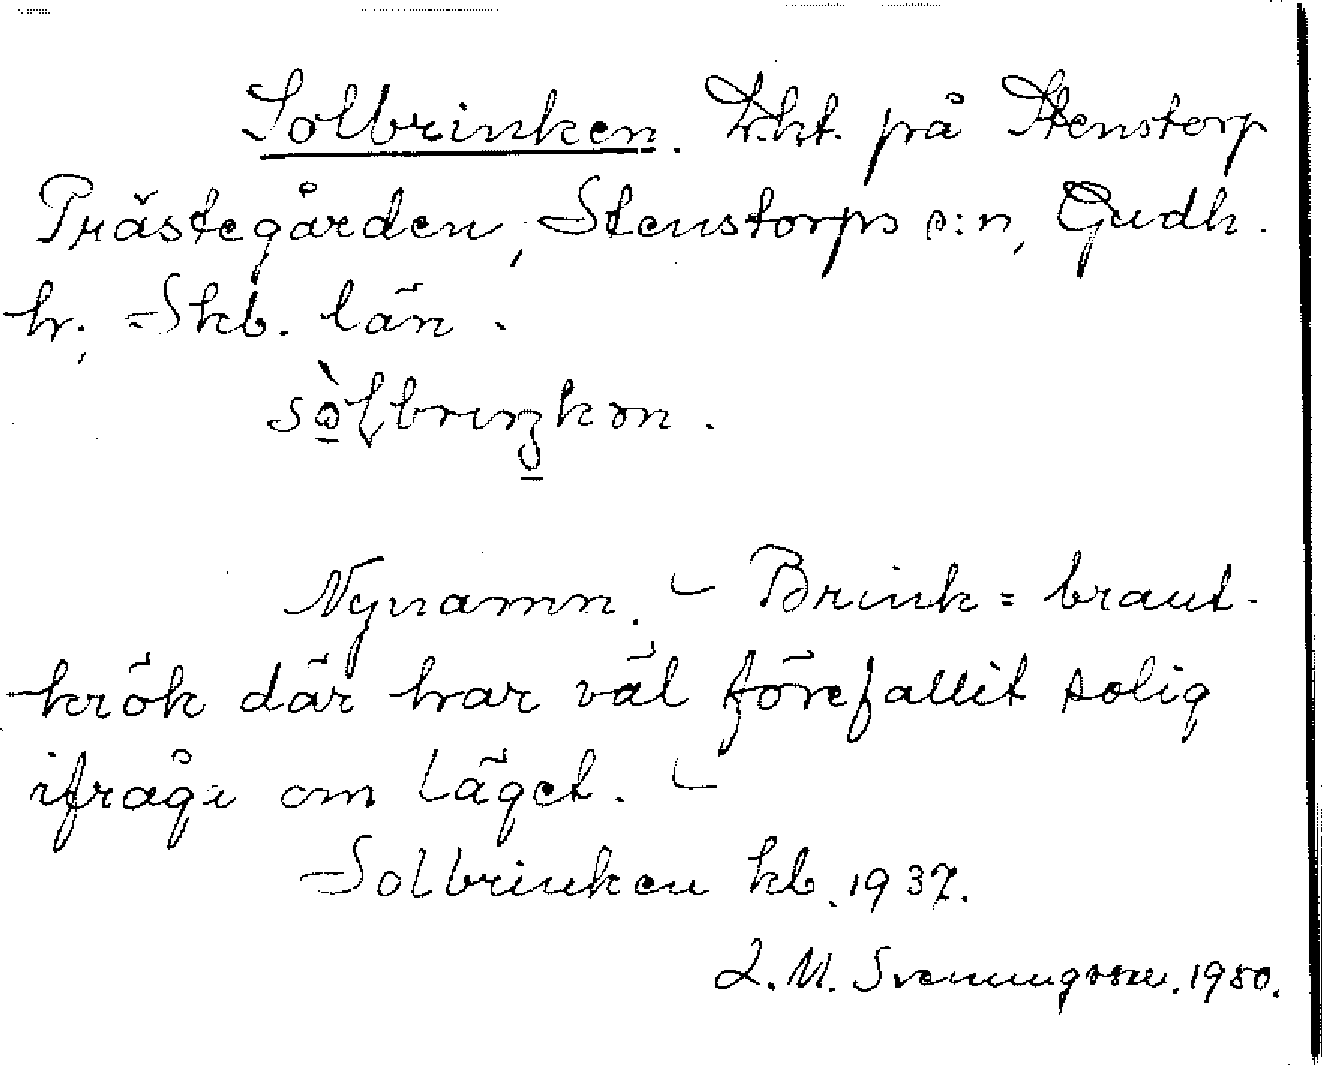 Solbrinken. Lht. på Stenstorp
Prästegården, Stenstorps s:n, Gudh.
hr., Skb. län.
Nynamn. – Brink = brant-
krök där har väl förefallit solig
ifråga om läget. –
Solbrinken kb. 1937.
L. M. Svenungsson. 1980.